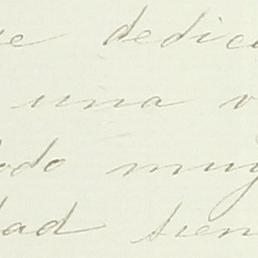 e dedic
una v
odo muy
dad sien